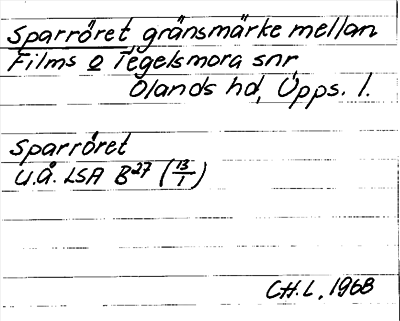 Sparröret gränsmärke mellan
Films o Tegelsmora snr
Olands hd, Upps. l.
Sparröret
U.å. LSA B27 (13/1)
CH.L, 1968